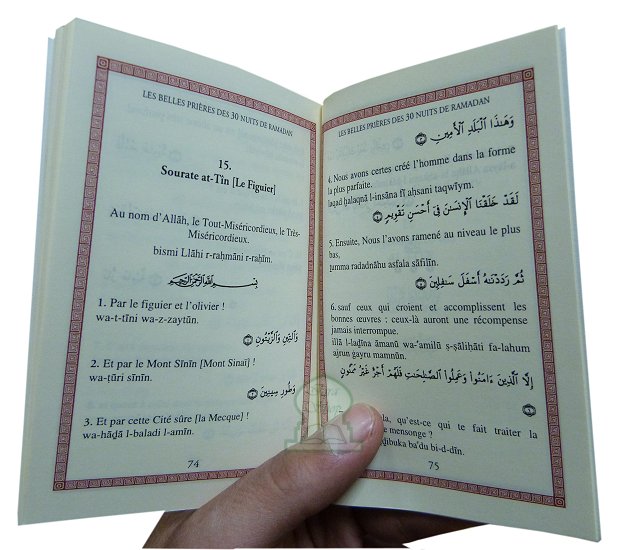 LES BELLES PRIÈRES DES 30 NUITS DE RAMADAN
15.
Sourate at-Tîn [Le Figuier]
Au nom d'Allāh, le Tout-Miséricordieux, le Très-
Miséricordieux.
bismi Llāhi r-raḥmāni r-raḥīm.
بِسْمِ اللَّهِ الرَّحْمَٰنِ الرَّحِيمِ
1. Par le figuier et l'olivier !
wa-t-tīni wa-z-zaytūn.
وَالتِّينِ وَالزَّيْتُونِ ۝١
2. Et par le Mont Sīnīn [Mont Sinaï] !
wa-ṭūri sīnīn.
وَطُورِ سِينِينَ ۝٢
3. Et par cette Cité sûre [la Mecque] !
wa-hāḏā l-baladi l-amīn.
74
LES BELLES PRIÈRES DES 30 NUITS DE RAMADAN
وَهَٰذَا الْبَلَدِ الْأَمِينِ ۝٣
4. Nous avons certes créé l'homme dans la forme
la plus parfaite.
laqad ḫalaqnā l-insāna fī aḥsani taqwīym.
لَقَدْ خَلَقْنَا الْإِنسَٰنَ فِي أَحْسَنِ تَقْوِيمٍ ۝٤
5. Ensuite, Nous l'avons ramené au niveau le plus
bas,
ṯumma radadnāhu asfala sāfilīn.
ثُمَّ رَدَدْنَٰهُ أَسْفَلَ سَٰفِلِينَ ۝٥
6. sauf ceux qui croient et accomplissent les
bonnes œuvres : ceux-là auront une récompense
jamais interrompue.
illā l-laḏīna āmanū wa-'amilū ṣ-ṣāliḥāti fa-lahum
ajrun gayru mamnūn.
إِلَّا الَّذِينَ ءَامَنُوا وَعَمِلُوا الصَّٰلِحَٰتِ فَلَهُمْ أَجْرٌ غَيْرُ مَمْنُونٍ ۝٦
la, qu'est-ce qui te fait traiter la
mensonge ?
ḏḏibuka ba'du bi-d-dīn.
75